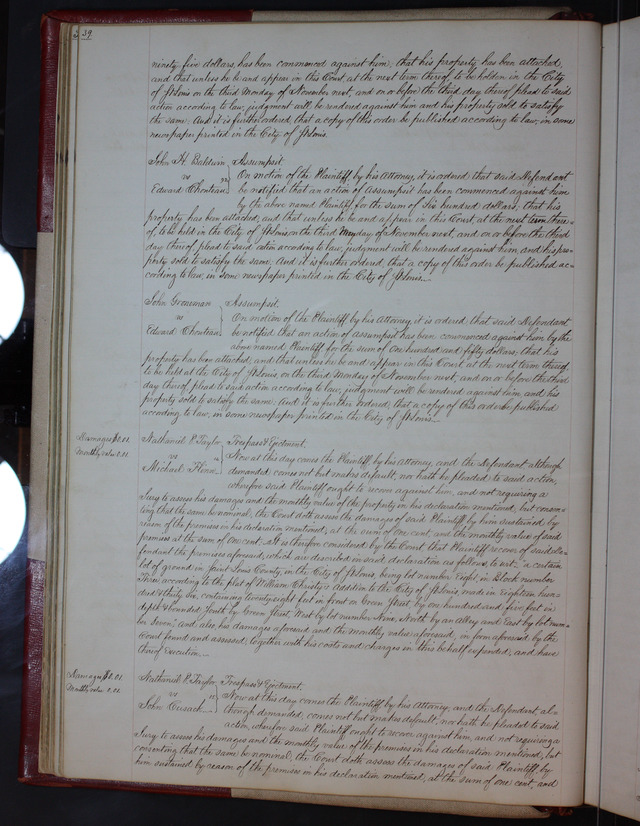 239
ninety five dollars, has been commenced against him, that his property has been attached,
and that unless he be and appear in this Court, at the next term thereof, to be holden in the City
of St Louis on the third Monday of November next, and on or before the third day thereof plead to said
action according to law, judgment will be rendered against him and his property sold to satisfy
the same. And it is further ordered that a copy of this order be published according to law, in some
newspaper printed in the City of St Louis.
John H. Baldwin, Assumpsit.
vs On motion of the Plaintiff by his Attorney, it is ordered that said Defendant
Edward Chouteau be notified that an action of assumpsit has been commenced against him
by the above named Plaintiff for the sum of Six hundred dollars, that his
property has been attached, and that unless he be and appear in this Court, at the next term there-
of, to be held in the City of St Louis, on the third Monday of November next, and on or before the third
day thereof plead to said action according to law, judgment will be rendered against him, and his pro-
perty sold to satisfy the same. And it is further ordered, that a copy of this order be published ac-
cording to law, in some newspaper printed in the City of St Louis.
John Assumpsit.
vs On motion of the Plaintiff by his Attorney, it is ordered, that said Defendant
Edward Chouteau be notified that an action of assumpsit has been commenced against him by the
above named Plaintiff for the sum of One hundred and fifty dollars; that his
property has been attached, and that unless he be and appear in this Court at the next term thereof,
to be held at the City of St Louis, on the third Monday of November next, and on or before the third
day thereof plead to said action according to law, judgment will be rendered against him, and his
property sold to satisfy the same. And it is further ordered, that a copy of this order be published
according to law, in some newspaper printed in the City of St Louis.
Damages $0.01 Nathaniel P. Taylor, Trespass & Ejectment.
Monthly value 0.01 vs Now at this day comes the Plaintiff by his Attorney, and the Defendant although
Michael demanded, comes not but makes default, nor hath he pleaded to said action,
wherefore said Plaintiff ought to recover against him, and not requiring a
Jury to assess his damages and the monthly value of the property in his declaration mentioned, but consen-
ting that the same be nominal, the Court doth assess the damages of said Plaintiff by him sustained by
reason of the premises in his declaration mentioned, at the sum of one cent, and the monthly value of said
premises at the sum of one cent. It is therefore considered by the Court that Plaintiff recover of said de-
fendant the premises aforesaid, which are described in said declaration as follows, to wit, "a certain
lot of ground in Saint Louis County, in the City of St Louis, being lot number Eight, in Block number
Three according to the plat of William Christy's addition to the City of St Louis, made in Eighteen hun-
dred & thirty six, containing twenty eight feet in front on Green Street by one hundred and five feet in
depth & bounded South by Green Street, West by lot number Nine, North by an alley and East by lot num-
ber Seven", and also his damages aforesaid and the monthly value aforesaid, in form aforesaid by the
Court found and assessed, together with his costs and charges in this behalf expended, and have
thereof Execution.
Damages $0.01 Nathaniel P. Taylor, Trespass & Ejectment.
Monthly value 0.01 vs Now at this day comes the Plaintiff by his Attorney, and the Defendant, al-
John Cusack though demanded, comes not but makes default, nor hath he pleaded to said
action, wherefore said Plaintiff ought to recover against him, and not requiring a
Jury to assess his damages and the monthly value of the premises in his declaration mentioned, but
consenting that the same be nominal, the Court doth assess the damages of said Plaintiff, by
him sustained by reason of the premises in his declaration mentioned, at the sum of one cent, and